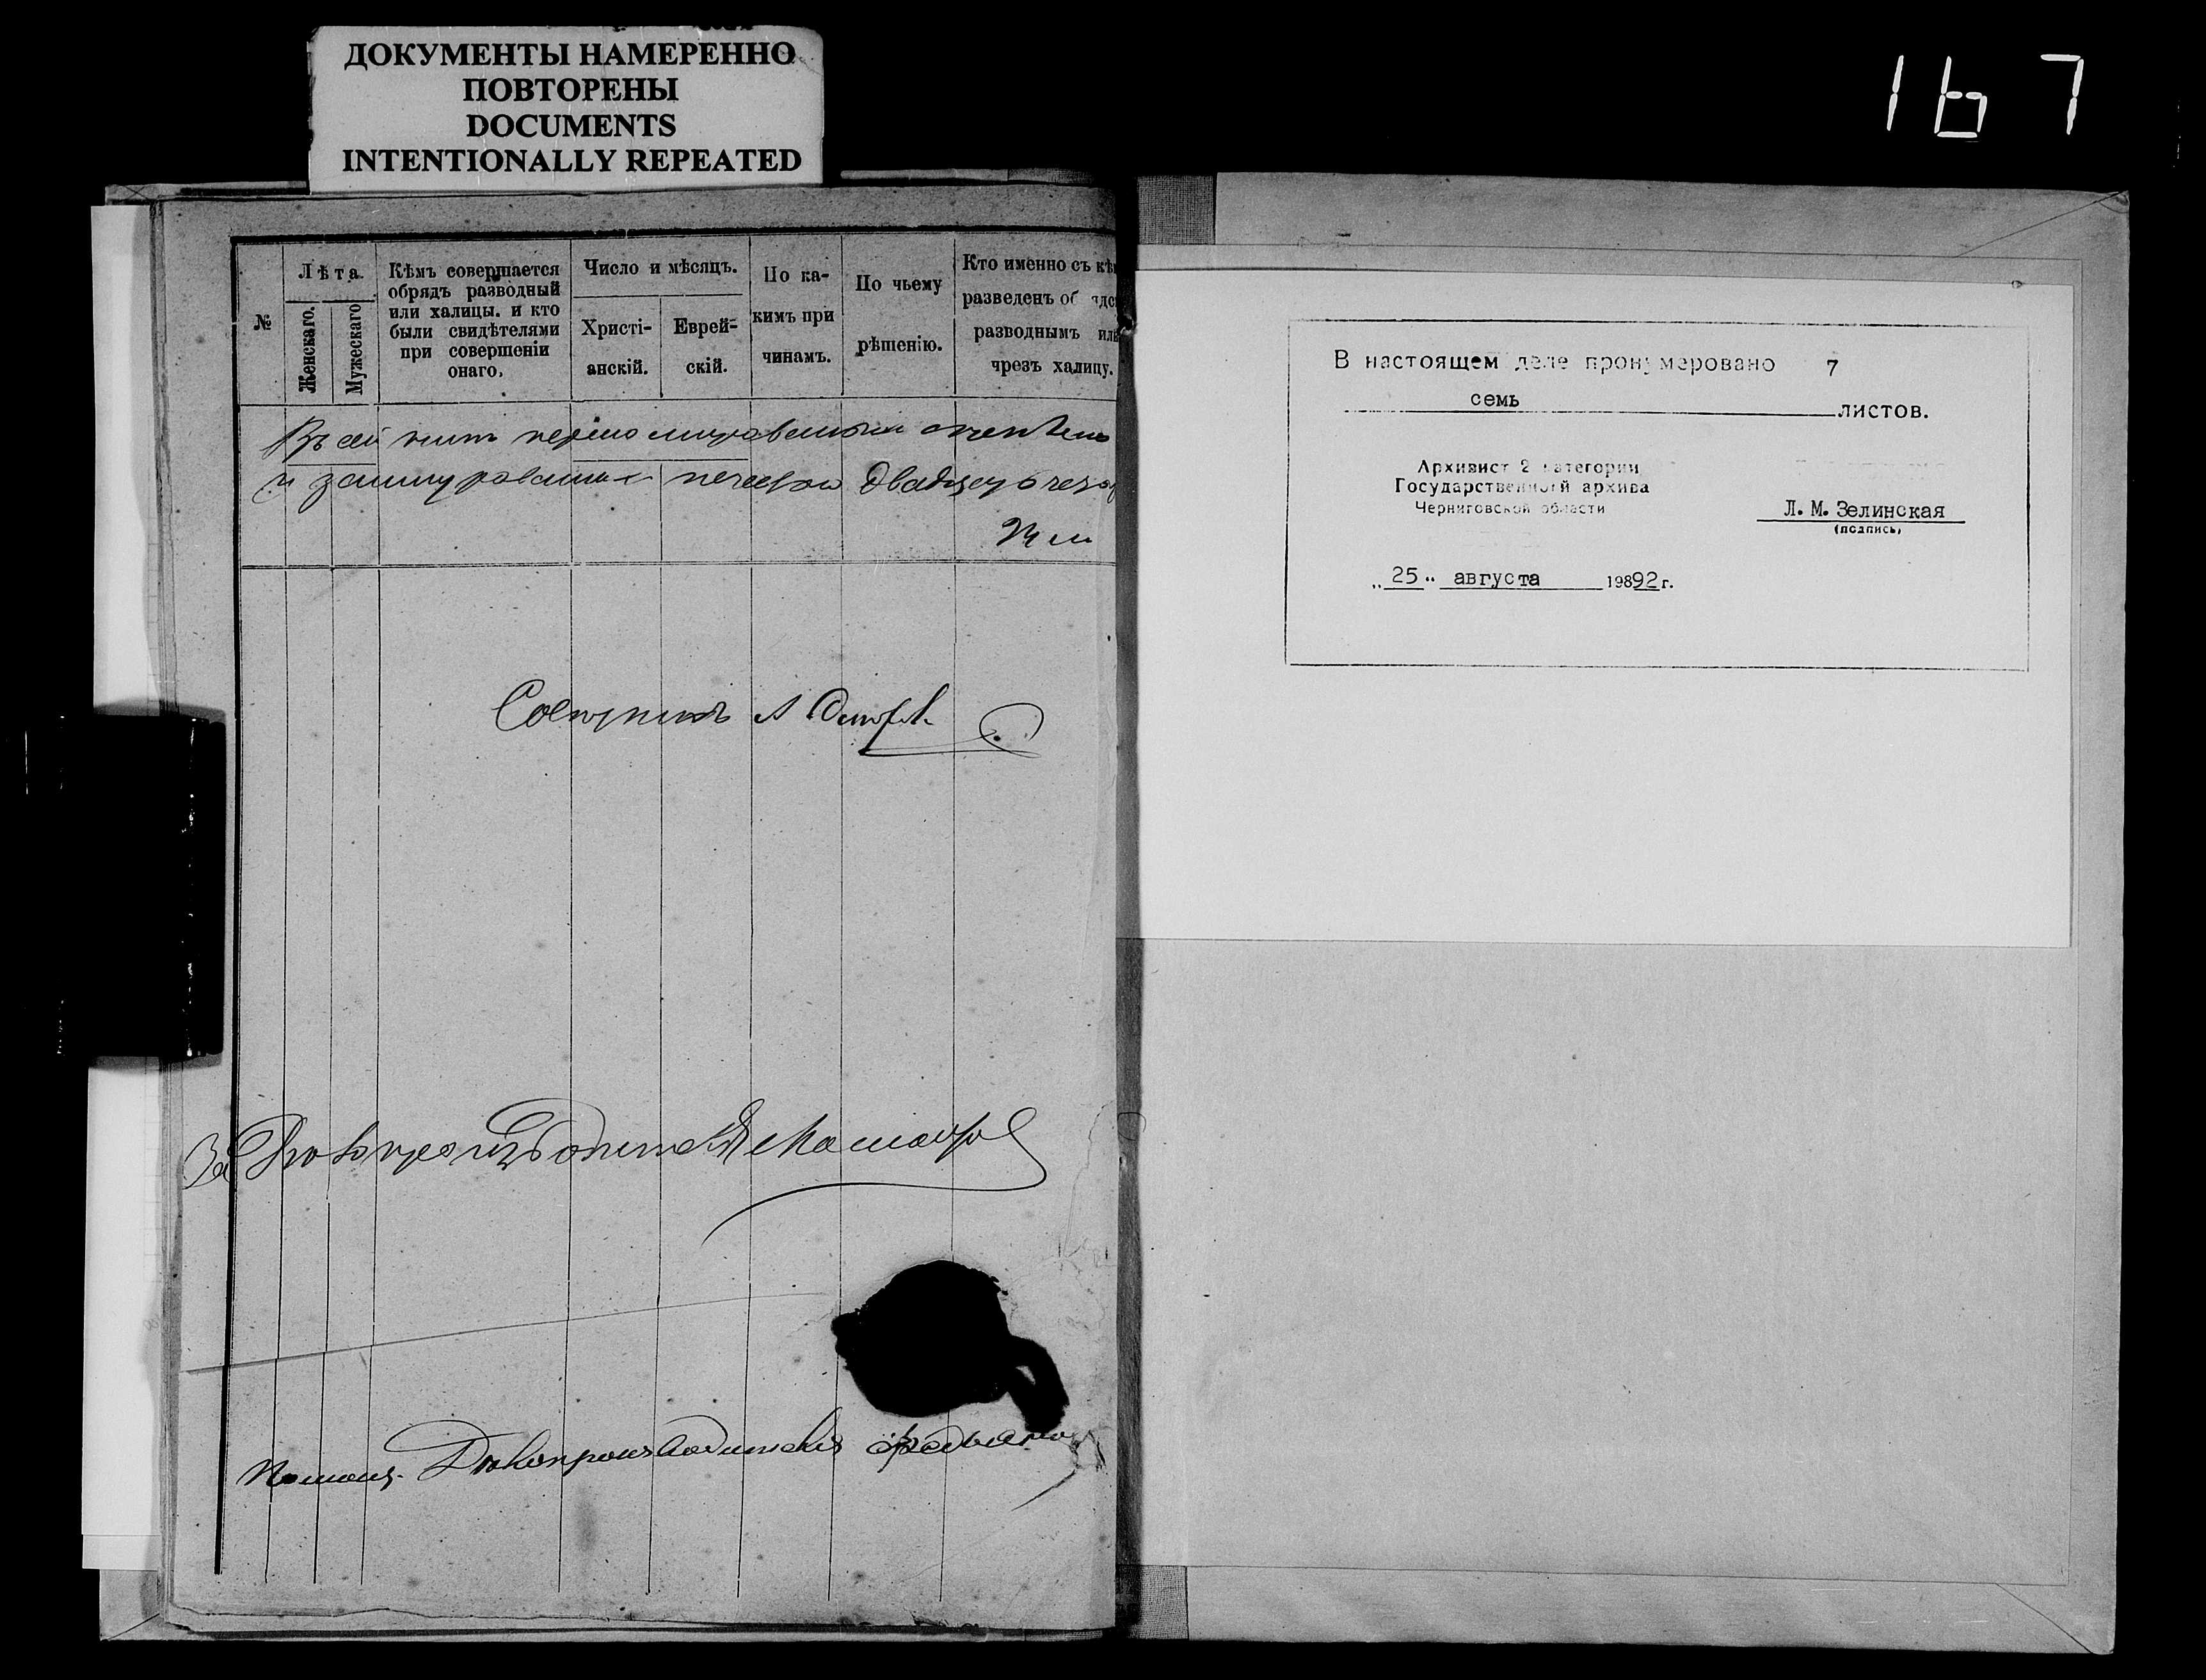 ДОКУМЕНТЫ НАМЕРЕННО
ПОВТОРЕНЫ
DOCUMENTS
INTENTIONALLY REPEATED
167
№
Лѣта.
Женскаго.
Мужескаго
Кѣмъ совершается
обрядъ разводный
или халицы. и кто
были свидѣтелями
при совершеніи
онаго.
Число и мѣсяцъ.
Христі-
анскій.
Еврей-
скій.
По ка-
кимъ при
чинамъ.
По чьему
рѣшенію.
Кто именно съ кѣ
разведенъ об ядс
разводнымъ или
чрезъ халицу.
Въ сей
и печатью двадцать
Совѣтникъ А
За Дѣлопроизводителя
Помощ. Дѣлопроизводителя
В настоящем деле пронумеровано 7
семь листов.
Архивист 2 категории
Государственной архива
Черниговской области
Л. М. Зелинская
(подпись)
„ 25 " августа 19892 г.